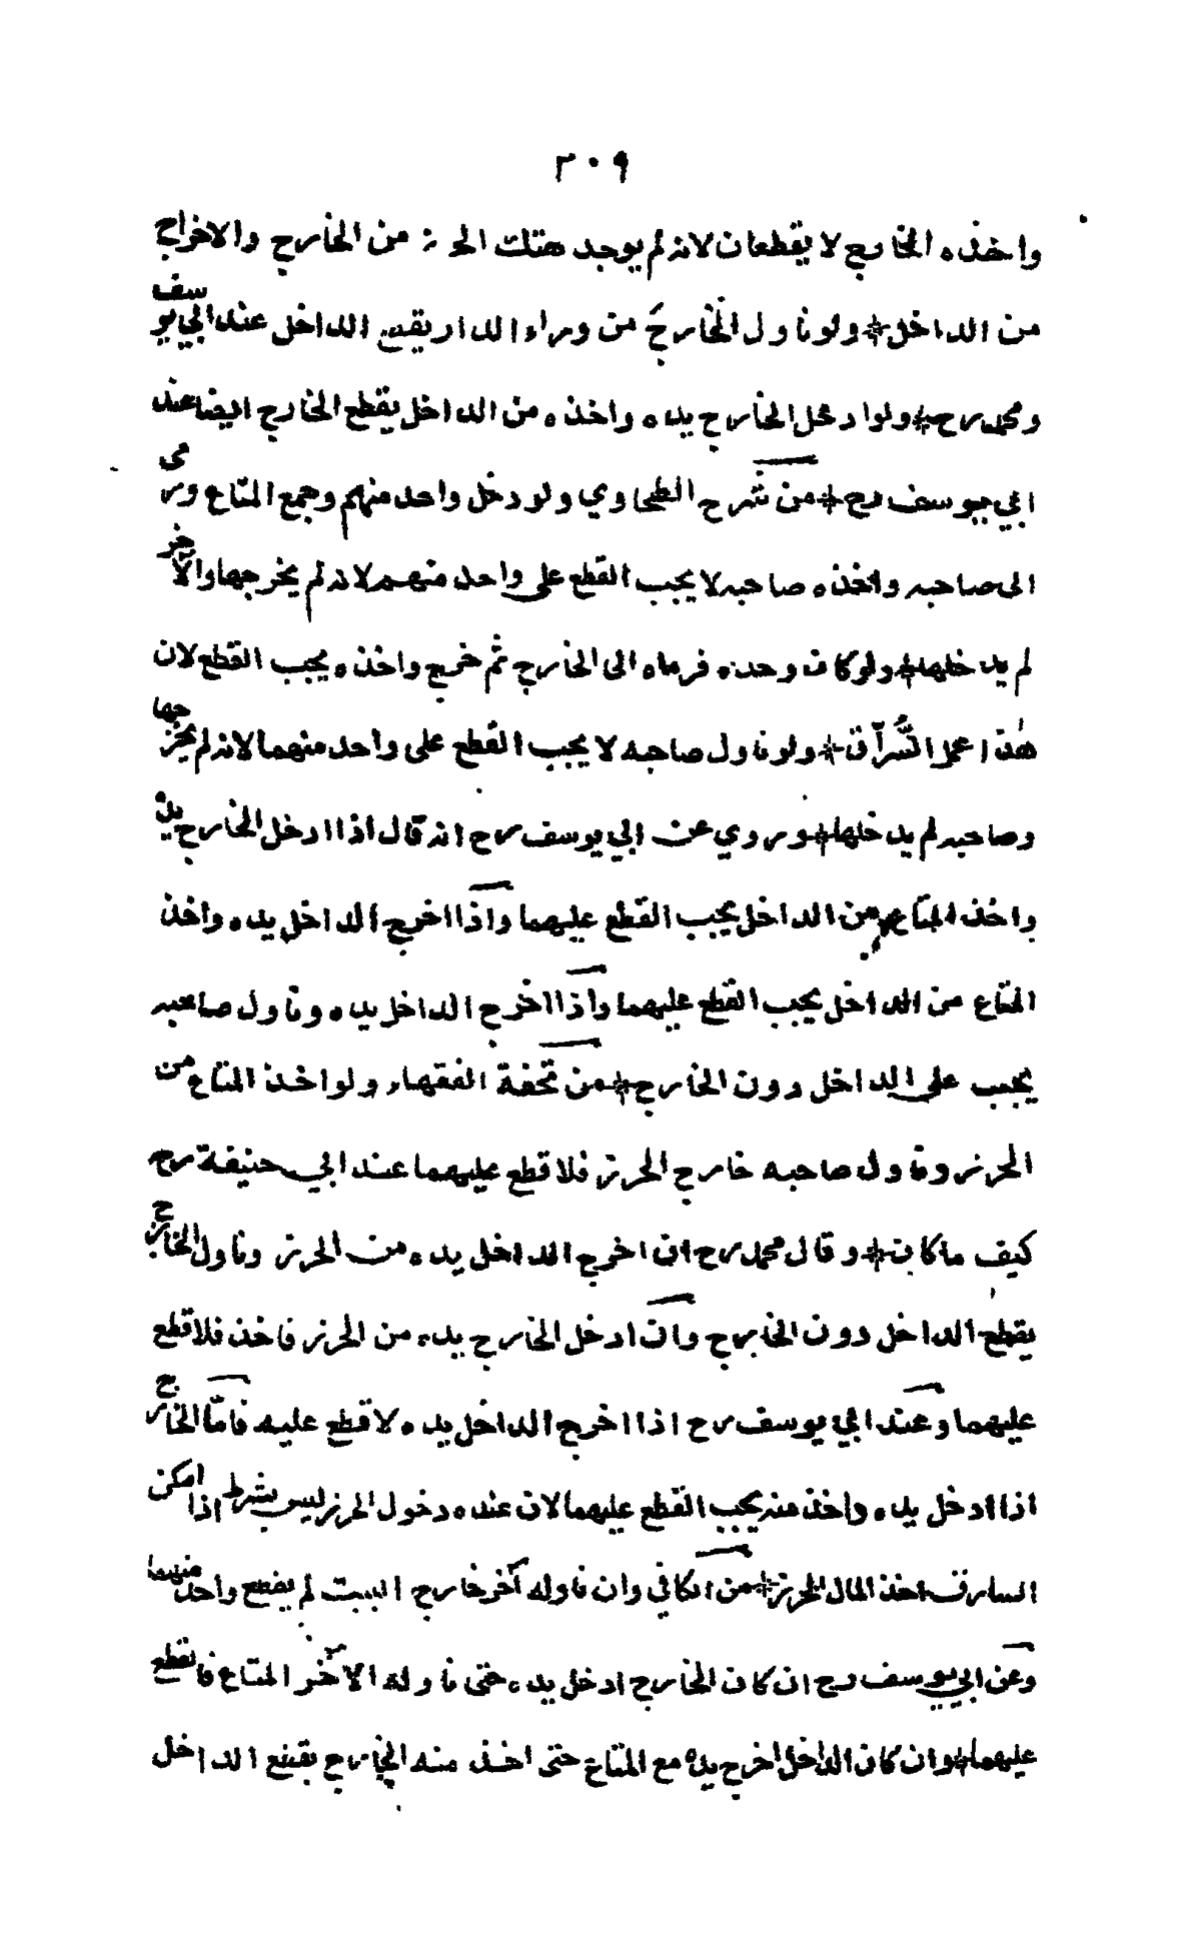 ٣٠٩
واخذه الخارج لا يقطعان لانه لم يوجد هتك الحرز من الخارج والاخراج
من الداخل ولو ناول الخارجَ من وراء الدار يقطع الداخل عند ابي يوسف
ومحمد رح ولو ادخل الخارج يده واخذه من الداخل يقطع الخارج ايضا عند
ابي يوسف رح من شرح الطحاوي ولو دخل واحد منهم وجمع المتاع ورمى
الى صاحبه واخذه صاحبه لا يجب القطع على واحد منهم لانه لم يخرجها والآخر
لم يدخلها ولو كان وحده فرماه الى الخارج ثم خرج واخذه يجب القطع لان
هذا عمل السُّرّاق ولو ناول صاحبه لا يجب القطع على واحد منهما لانه لم يخرجها
وصاحبه لم يدخلها وروي عن ابي يوسف رح انه قال اذا ادخل الخارج يده
واخذ المتاع من الداخل يجب القطع عليهما واذا اخرج الداخل يده واخذ
المتاع من الداخل يجب القطع عليهما واذا اخرج الداخل يده وناول صاحبه
يجب على الداخل دون الخارج من تحفة الفقهاء ولو اخذ المتاع من
الحرز وناول صاحبه خارج الحرز فلا قطع عليهما عند ابي حنيفة رح
كيف ما كان وقال محمد رح ان اخرج الداخل يده من الحرز وناول الخارج
يقطع الداخل دون الخارج وان ادخل الخارج يده من الحرز فاخذ فلا قطع
عليهما وعند ابي يوسف رح اذا اخرج الداخل يده لا قطع عليه فامّا الخارج
اذا ادخل يده واخذ منه يجب القطع عليهما لان عنده دخول الحرز ليس بشرط اذا امكن
السارق اخذ المال الحرز من الكافي وان ناوله آخر خارج البيت لم يقطع واحد منهما
وعن ابي يوسف رح ان كان الخارج ادخل يده حتى ناوله الآخر المتاع فالقطع
عليهما وان كان الداخل اخرج يده مع المتاع حتى اخذ منه الخارج يقطع الداخل